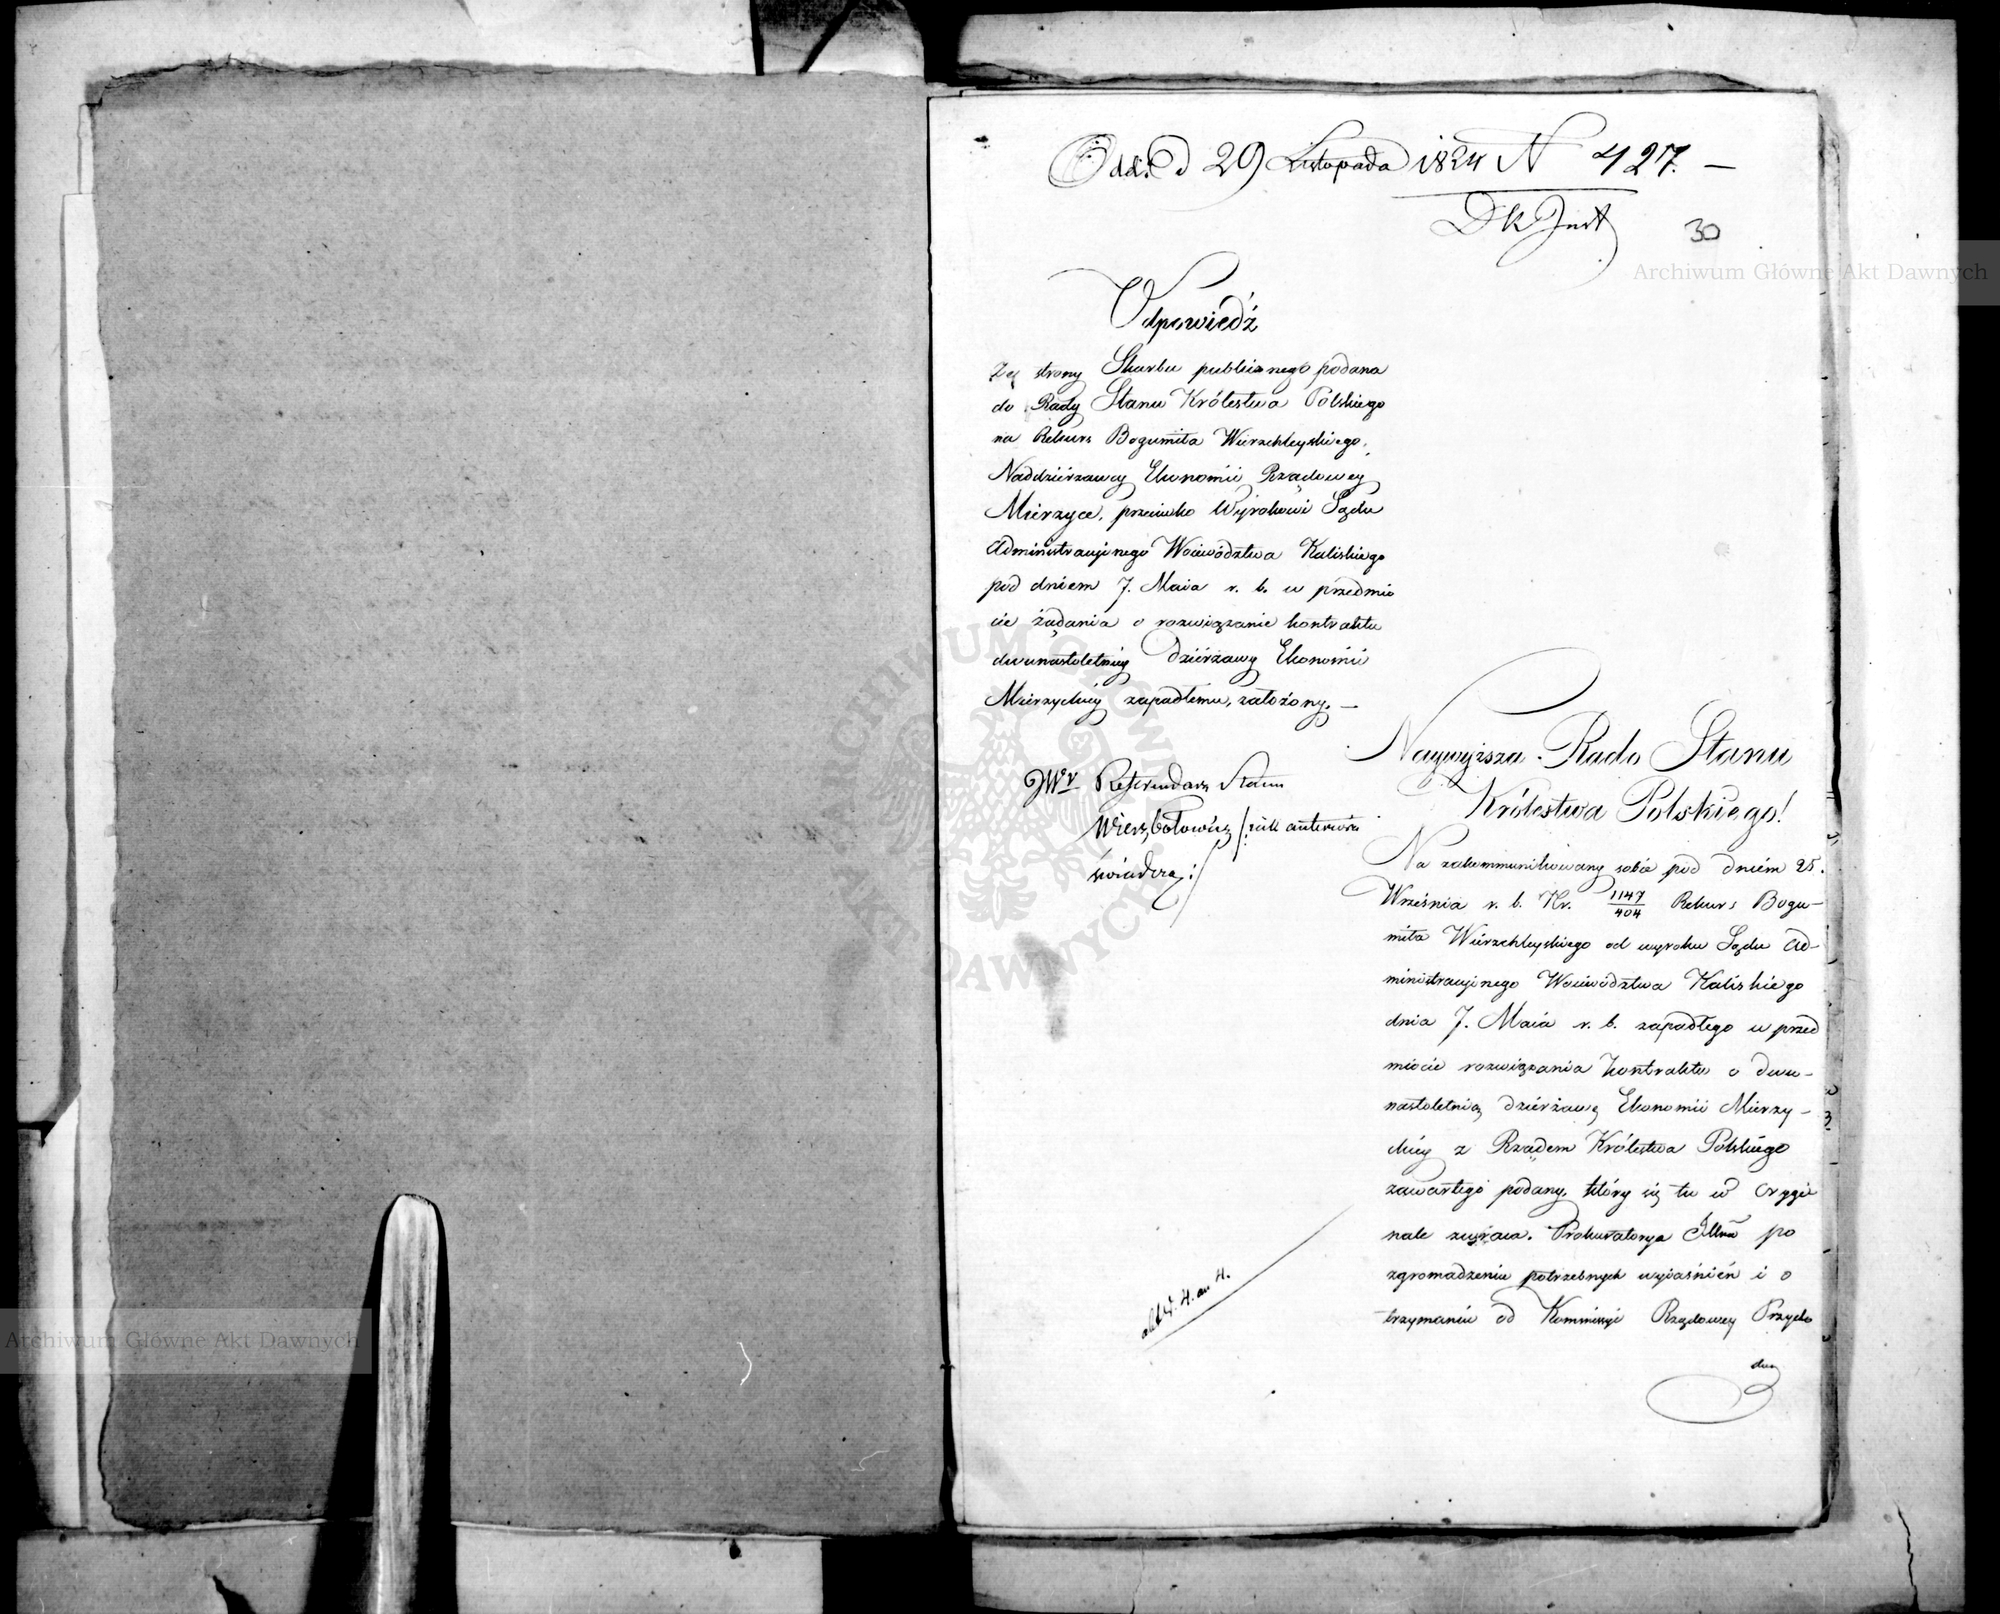 Odd. d 29 Listopada 1824 N 427. —
DkJust
30
Odpowiedź
Ze strony Skarbu publicznego podana
do Rady Stanu Królestwa Polskiego
na Rekurs Bogumiła Wierzchleyskiego,
Naddzierżawcy Ekonomii Rządowey
Mierzyce, przeciwko Wyrokowi Sądu
Administracyinego Woiewództwa Kaliskiego
pod dniem 7. Maia r. b. w przedmio
cie żądania o rozwiązanie kontraktu
dwunastoletniey Dzierżawy Ekonomii
Mierzyckiey zapadłemu, założony. —
JWr Referendarz Stanu
Wierzbołowicz /: jak
świadczą :/
Naywyższa Rado Stanu
Królestwa Polskiego!
Na zakommunikowany sobie pod dniem 25.
Września r. b. Nr. 1147/404 Rekurs Bogu-
miła Wierzchleyskiego od wyroku Sądu Ad-
ministracyinego Woiewództwa Kaliskiego
dnia 7. Maia r. b. zapadłego w przed
miocie rozwiązania kontraktu o dwu-
nastoletnią dzierżawę Ekonomii Mierzy-
ckiey z Rządem Królestwa Polskiego
zawartego podany, który się tu w orygi
nale zwraca. Prokuratorya po
zgromadzeniu potrzebnych wyiaśnień i o
trzymaniu od Kommissyi Rządowey Przycho
dow
Archiwum Główne Akt Dawnych
Archiwum Główne Akt Dawnych
ARCHIWUM GŁÓWNE AKT DAWNYCH